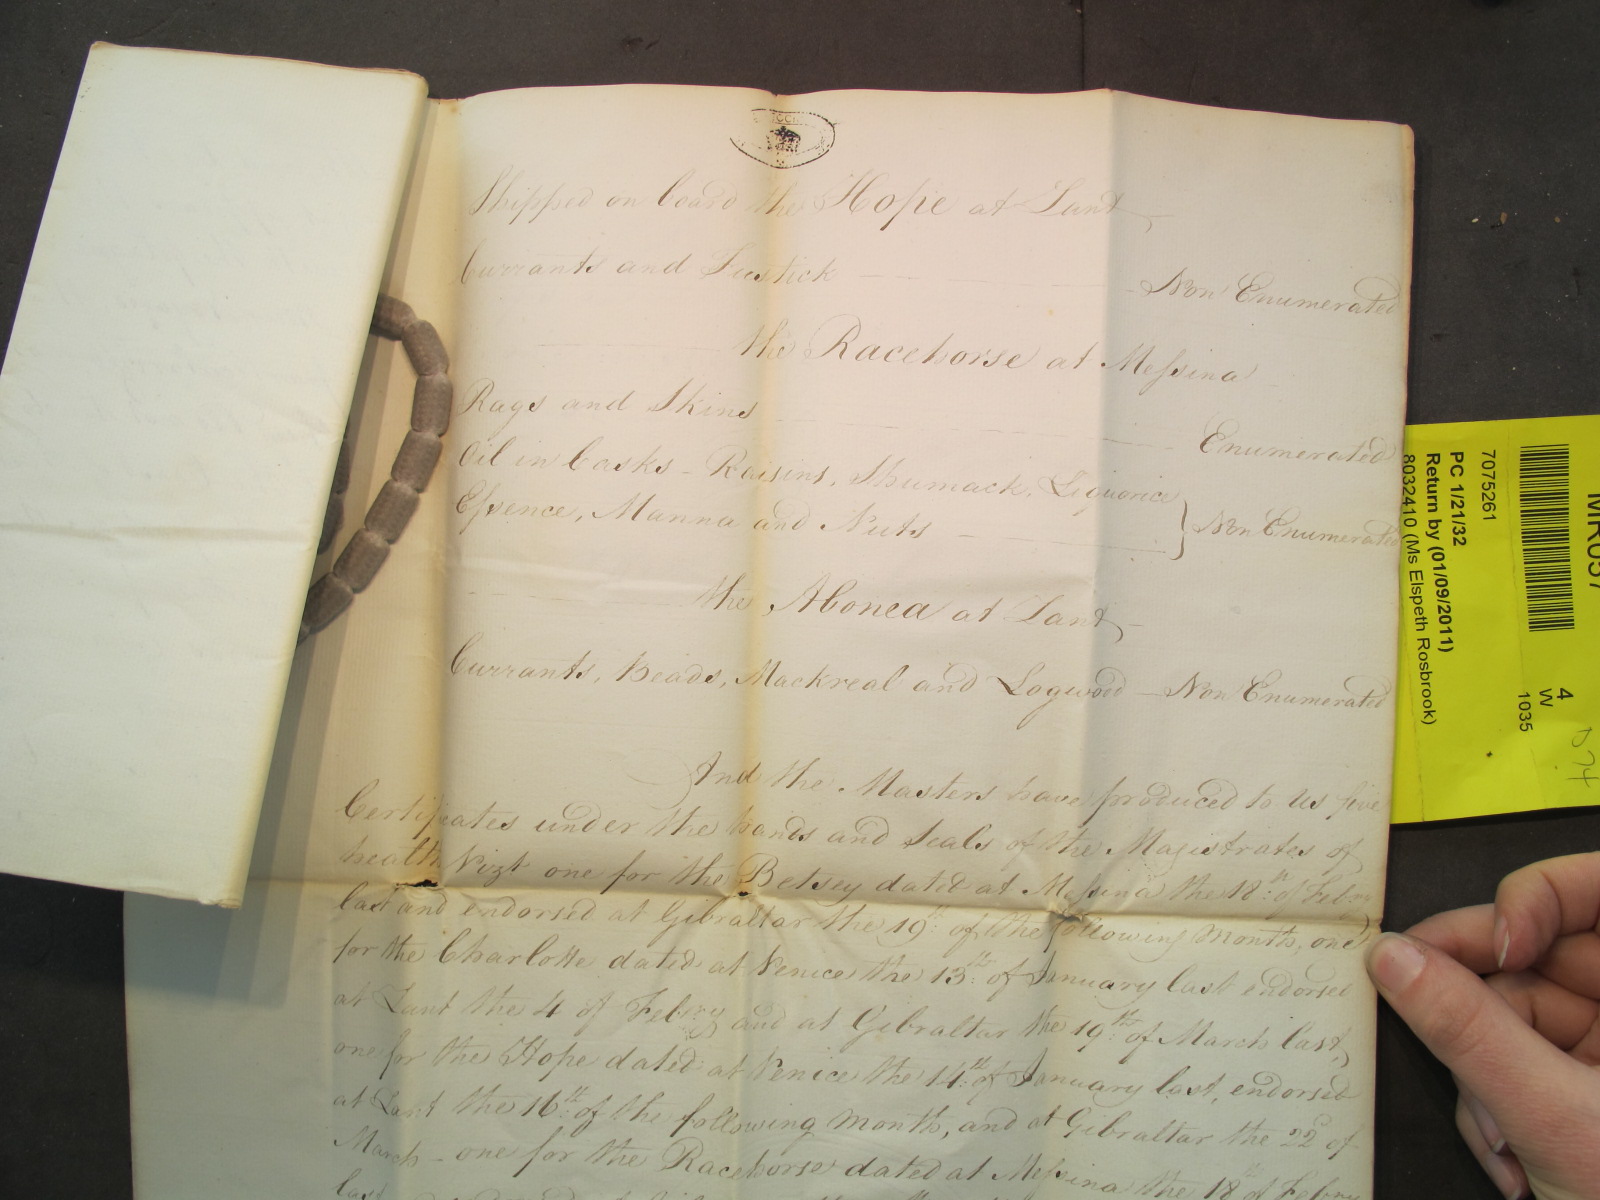 Shipped on board the Hope at Zant
Currants and Fustick Non Enumerated
the Racehorse at Messina
Rags and Skins Enumerated
Oil in Casks - Raisins, Shumack, Liquorice
Essence, Manna and Nuts - } Non Enumerated
the Abonea at Zant -
Currants, Beads, Mackreal and Logwood - Non Enumerated
And the Masters have produced to us five
Certificates under the hands and Seals of the Magistrates of
health Vizt one for the Betsey dated at Messina the 18th of Febry
last and endorsed at Gibraltar the 19th of the following Month, one
for the Charlotte dated at Venice the 13th of January last endorsed
at Zant the 4 of Febry and at Gibraltar the 19th of March last,
one for the Hope dated at Venice the 14th of January last, endorsed
at Zant the 16th of the following Month, and at Gibraltar the 22d of
March - one for the Racehorse dated at Messina the 18th of Febry
last
MR057
4
W
1035
7075261
PC 1/21/32
Return by (01/09/2011)
8032410 (Ms Elspeth Rosbrook)